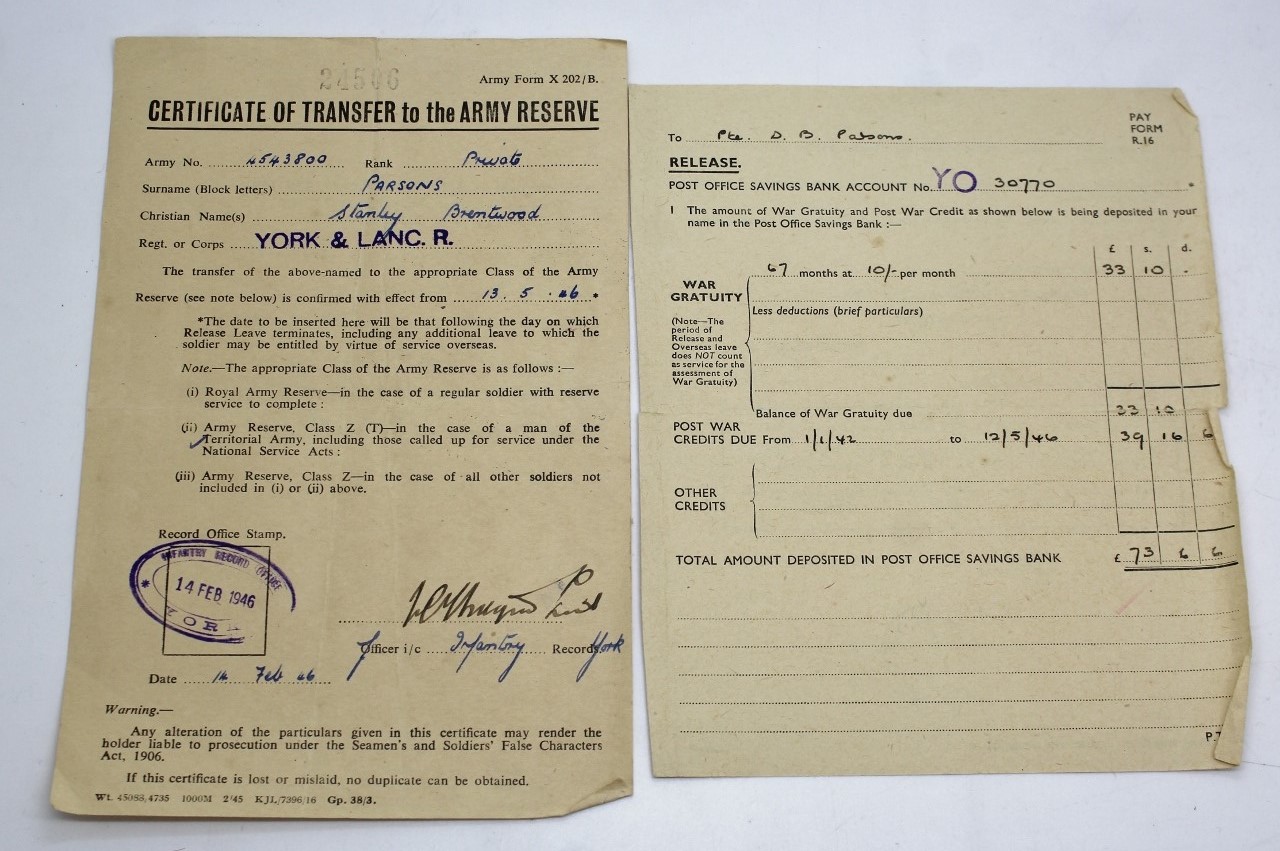 24506
Army Form X 202/B.
CERTIFICATE OF TRANSFER to the ARMY RESERVE
Army No. 4543800 Rank Private
Surname (Block letters) PARSONS
Christian Name(s) Stanley Brentwood
Regt. or Corps YORK & LANC. R.
The transfer of the above-named to the appropriate Class of the Army
Reserve (see note below) is confirmed with effect from 13. 5. 46 *
*The date to be inserted here will be that following the day on which
Release Leave terminates, including any additional leave to which the
soldier may be entitled by virtue of service overseas.
Note.—The appropriate Class of the Army Reserve is as follows :—
(i) Royal Army Reserve—in the case of a regular soldier with reserve
service to complete :
(ii) Army Reserve, Class Z (T)—in the case of a man of the
Territorial Army, including those called up for service under the
National Service Acts :
(iii) Army Reserve, Class Z—in the case of all other soldiers not
included in (i) or (ii) above.
Record Office Stamp.
INFANTRY RECORD OFFICE
* 14 FEB 1946
YORK
Officer i/c Infantory Records York
Date 14 Feb 46
Warning.—
Any alteration of the particulars given in this certificate may render the
holder liable to prosecution under the Seamen's and Soldiers' False Characters
Act, 1906.
If this certificate is lost or mislaid, no duplicate can be obtained.
Wt. 45088/4735 1000M 2/45 KJL/7396/16 Gp. 38/3.
PAY
FORM
R.16
To Pte. D. B. Parsons.
RELEASE.
POST OFFICE SAVINGS BANK ACCOUNT No. YO 30770
1 The amount of War Gratuity and Post War Credit as shown below is being deposited in your
name in the Post Office Savings Bank :—
£ s. d.
67 months at 10/- per month 33 10 -
WAR
GRATUITY
Less deductions (brief particulars)
(Note—The
period of
Release and
Overseas leave
does NOT count
as service for the
assessment of
War Gratuity)
Balance of War Gratuity due 33 10
POST WAR
CREDITS DUE From 1/1/42 to 12/5/46 39 16 6
OTHER
CREDITS
TOTAL AMOUNT DEPOSITED IN POST OFFICE SAVINGS BANK £ 73 6 6